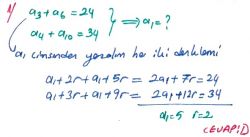 1/ a₃+a₆=24
a₄+a₁₀=34 } ⟹ a₁=?
a₁ cinsinden yazalım her iki denklemi
a₁+2r+a₁+5r = 2a₁+7r=24
a₁+3r+a₁+9r = 2a₁+12r=34
a₁=5 r=2
(CEVAP:D)